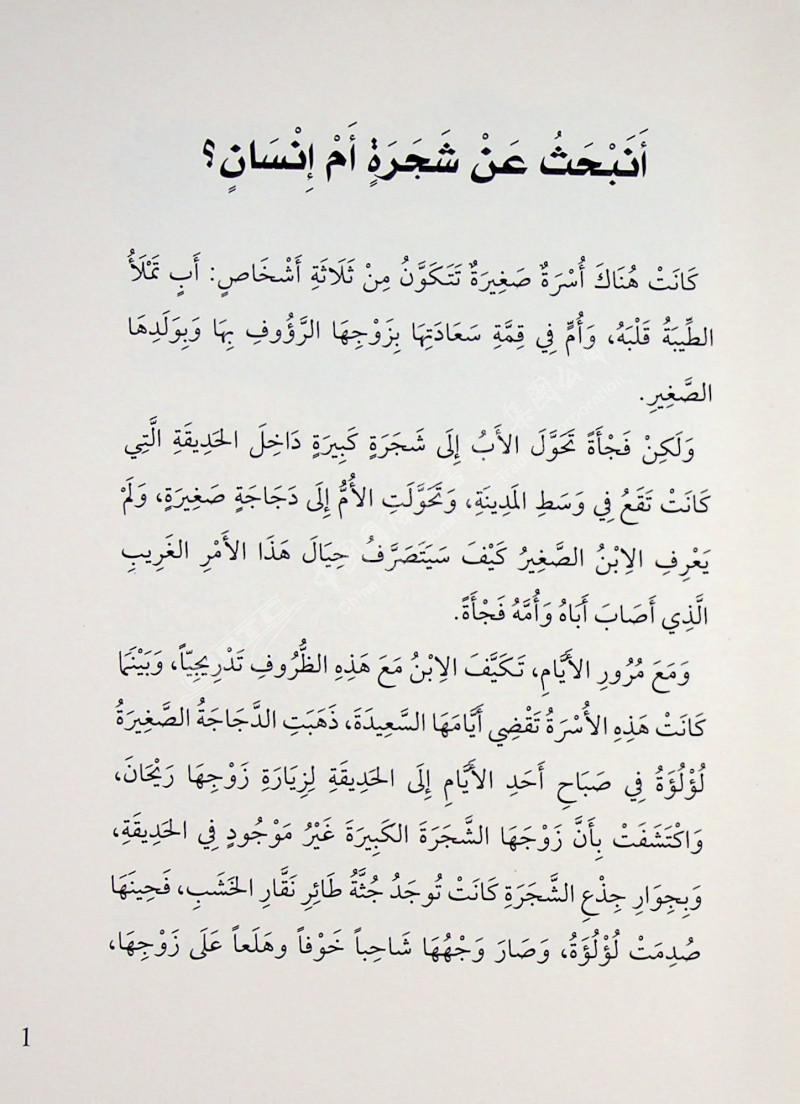 أَنَبْحَثُ عَنْ شَجَرَةٍ أَمْ إِنْسَانٍ؟
كَانَتْ هُنَاكَ أُسْرَةٌ صَغِيرَةٌ تَتَكَوَّنُ مِنْ ثَلَاثَةِ أَشْخَاصٍ: أَبٍ تَمْلَأُ
الطِّيبَةُ قَلْبَهُ، وَأُمٍّ فِي قِمَّةِ سَعَادَتِهَا بِزَوْجِهَا الرَّؤُوفِ بِهَا وَبِوَلَدِهَا
الصَّغِيرِ.
وَلَكِنْ فَجْأَةً تَحَوَّلَ الأَبُ إِلَى شَجَرَةٍ كَبِيرَةٍ دَاخِلَ الحَدِيقَةِ الَّتِي
كَانَتْ تَقَعُ فِي وَسَطِ المَدِينَةِ، وَتَحَوَّلَتِ الأُمُّ إِلَى دَجَاجَةٍ صَغِيرَةٍ، وَلَمْ
يَعْرِفِ الِابْنُ الصَّغِيرُ كَيْفَ سَيَتَصَرَّفُ حِيَالَ هَذَا الأَمْرِ الغَرِيبِ
الَّذِي أَصَابَ أَبَاهُ وَأُمَّهُ فَجْأَةً.
وَمَعَ مُرُورِ الأَيَّامِ، تَكَيَّفَ الِابْنُ مَعَ هَذِهِ الظُّرُوفِ تَدْرِيجِيّاً، وَبَيْنَمَا
كَانَتْ هَذِهِ الأُسْرَةُ تَقْضِي أَيَّامَهَا السَّعِيدَةَ، ذَهَبَتِ الدَّجَاجَةُ الصَّغِيرَةُ
لُؤْلُؤَةُ فِي صَبَاحِ أَحَدِ الأَيَّامِ إِلَى الحَدِيقَةِ لِزِيَارَةِ زَوْجِهَا رَيْحَانَ،
وَاكْتَشَفَتْ بِأَنَّ زَوْجَهَا الشَّجَرَةَ الكَبِيرَةَ غَيْرُ مَوْجُودٍ فِي الحَدِيقَةِ،
وَبِجِوَارِ جِذْعِ الشَّجَرَةِ كَانَتْ تُوجَدُ جُثَّةُ طَائِرِ نَقَّارِ الخَشَبِ، فَحِينَهَا
صُدِمَتْ لُؤْلُؤَةُ، وَصَارَ وَجْهُهَا شَاحِباً خَوْفاً وهَلَعاً عَلَى زَوْجِهَا،
1